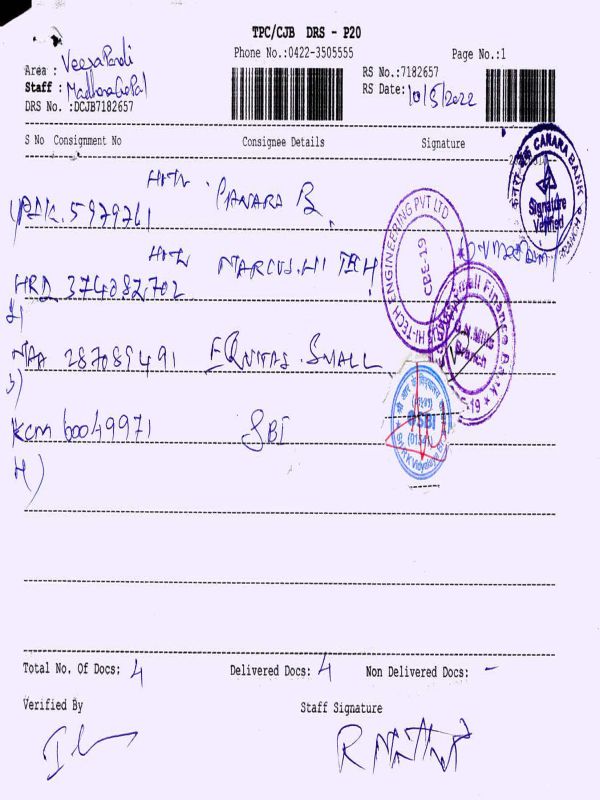 TPC/CJB DRS - P20
Phone No.:0422-3505555 Page No.:1
Area : VeeraPandi
Staff : MadhanaGoPal
RS No.:7182657
RS Date: 10/5/2022
DRS No. :DCJB7182657
S No Consignment No Consignee Details Signature
CANARA BANK
Signature
Verified
5979761
HI-TECH ENGINEERING PVT LTD
CBE-19
HRD 374082702 MARCUS. HI TECH
2)
MAA 287089491 EQuitas. Small
3)
Small Finance Bank
Branch
Kcm 60049971 SBI
4)
SBI
Total No. Of Docs: 4 Delivered Docs: 4 Non Delivered Docs: -
Verified By Staff Signature